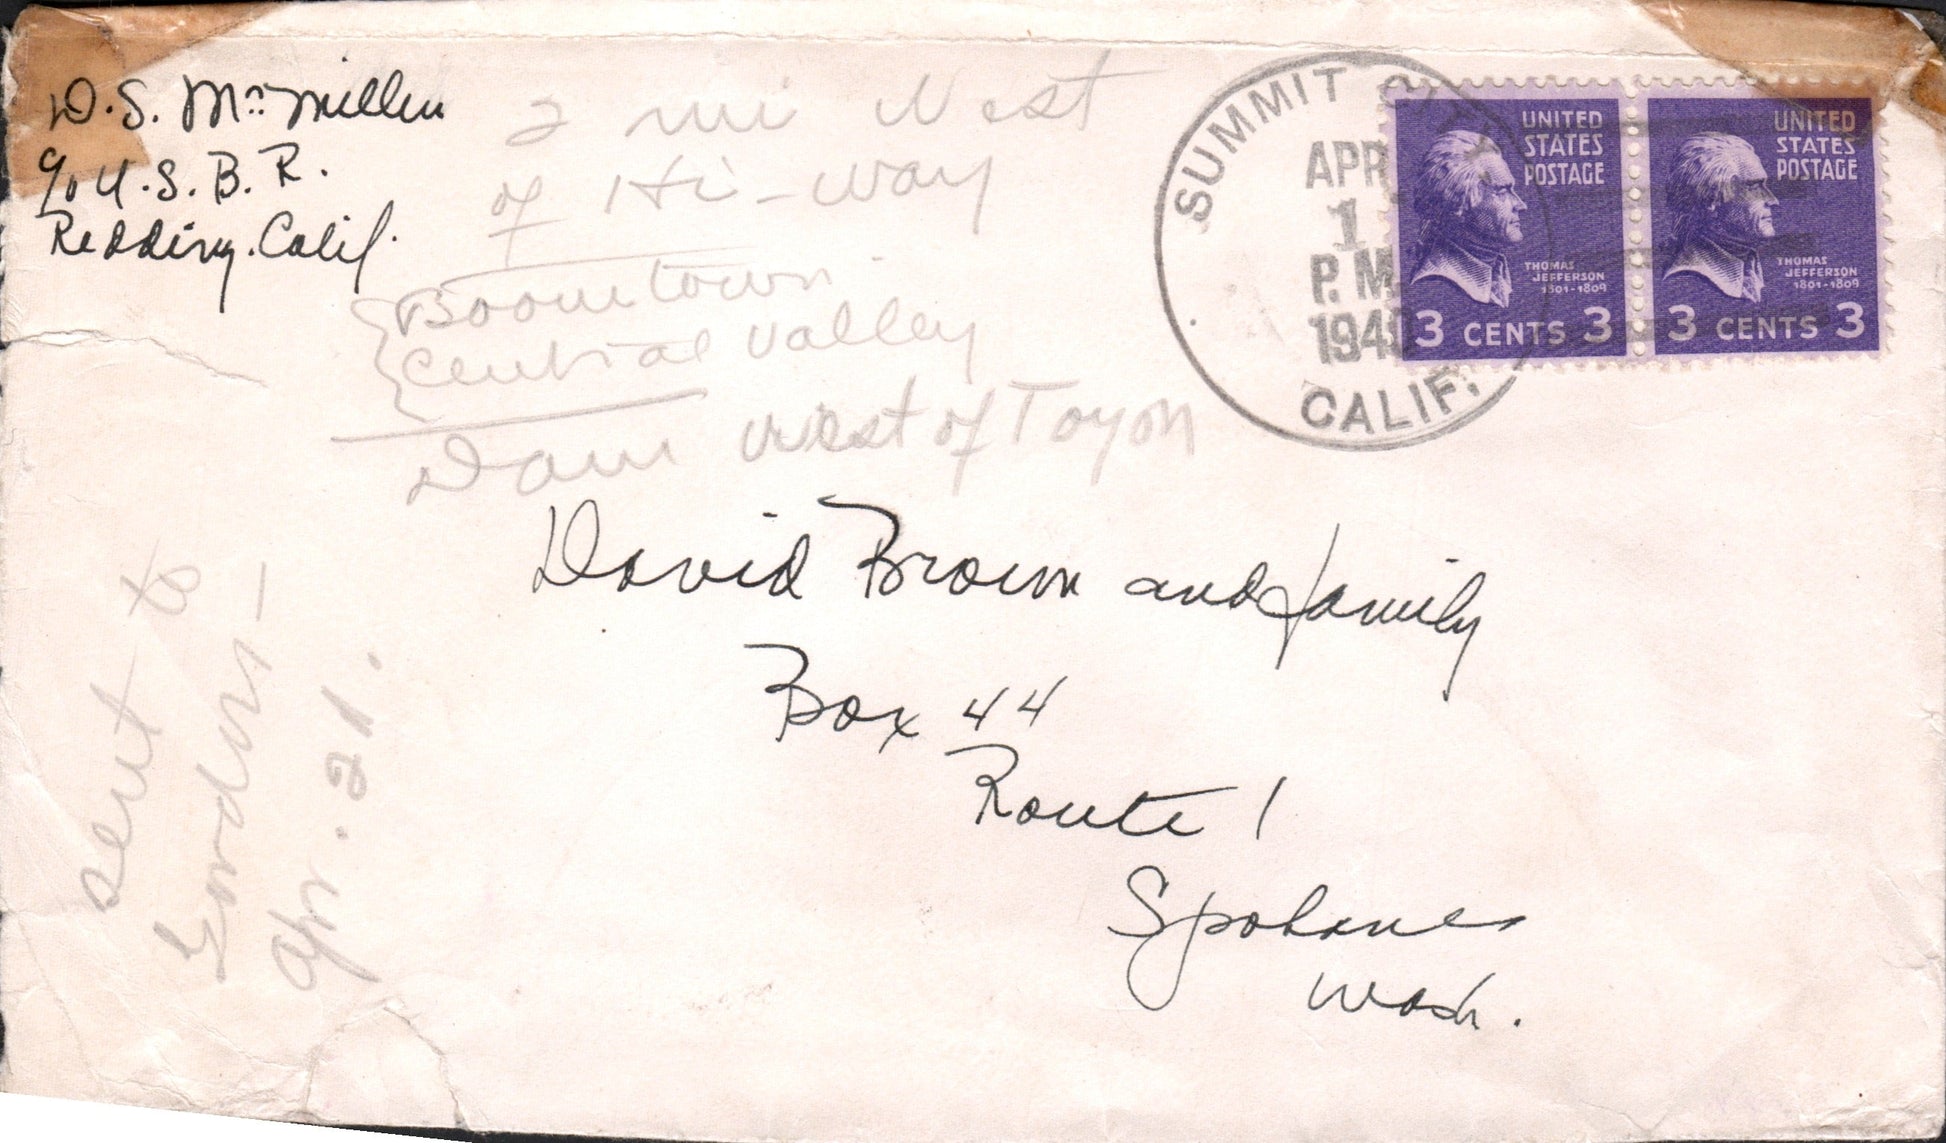 D.S. McMillen
c/o U.S.B.R.
Redding. Calif.
2 mi West
of Hi-way
Boomtown
Central Valley
Dam West of Toyon
SUMMIT CITY
APR
1
P.M.
1940
CALIF.
UNITED
STATES
POSTAGE
THOMAS
JEFFERSON
1801-1809
3 CENTS 3
UNITED
STATES
POSTAGE
THOMAS
JEFFERSON
1801-1809
3 CENTS 3
David Brown and family
Box 44
Route 1
Spokane
Wash.
sent to
Gordons —
Apr. 21.